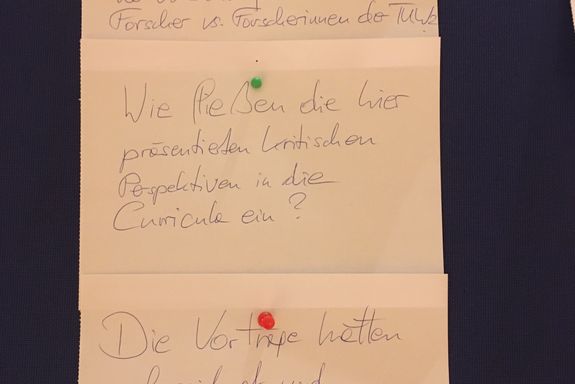 Forscher vs. Forscherinnen der TUWs
Wie fließen die hier
präsentierten kritischen
Perspektiven in die
Curricula ein?
Die Vorträge hätten
und